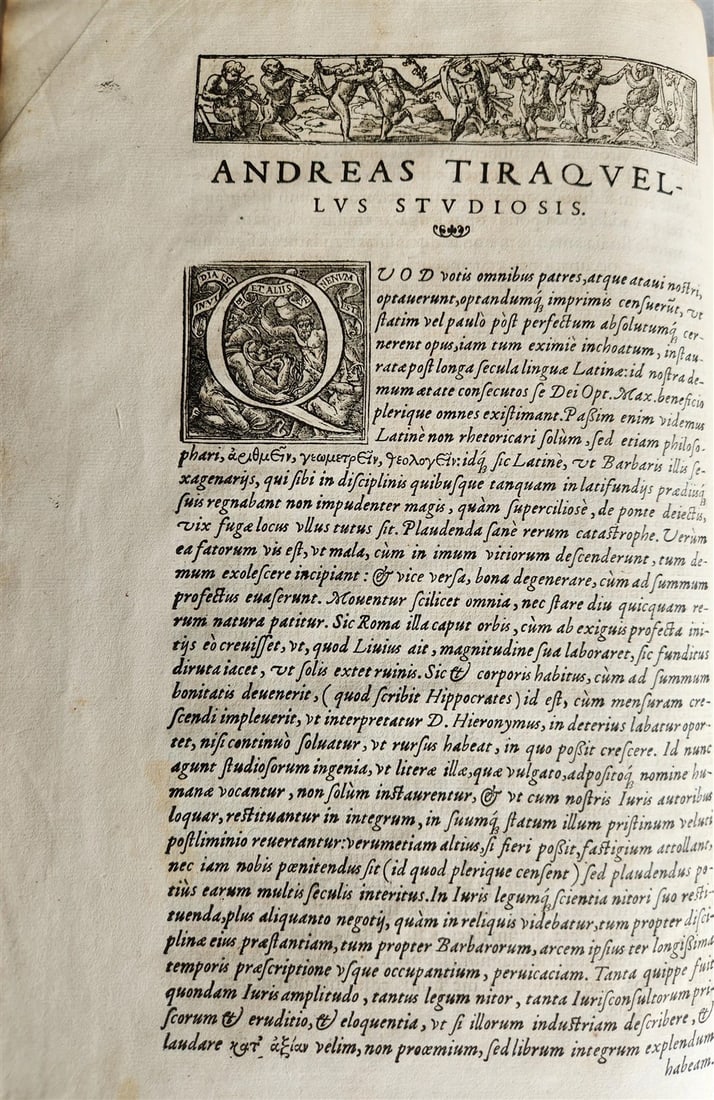 ANDREAS TIRAQVEL-
LVS STVDIOSIS.
QVOD votis omnibus patres, atque ataui nostri,
optauerunt, optandumq́; imprimis censuerũt, vt
statim vel paulò pòst perfectum absolutumq́; cer-
nerent opus, iam tum eximiè inchoatum, instau-
ratæ post longa secula linguæ Latinæ: id nostra de-
mum ætate consecutos se Dei Opt. Max. beneficio
plerique omnes existimant. Paßim enim videmus
Latinè non rhetoricari solùm, sed etiam philoso-
phari, ἀριθμεῖν, γεωμετρεῖν, θεολογεῖν: idq́; sic Latinè, vt Barbaris illis se-
xagenarijs, qui sibi in disciplinis quibusque tanquam in latifundijs prædiisq́;
suis regnabant non impudenter magis, quàm superciliosè, de ponte deiectis,
vix fugæ locus vllus tutus sit. Plaudenda sanè rerum catastrophe. Verum
ea fatorum vis est, vt mala, cùm in imum vitiorum descenderunt, tum de-
mum exolescere incipiant: & vice versa, bona degenerare, cùm ad summum
profectus euaserunt. Mouentur scilicet omnia, nec stare diu quicquam re-
rum natura patitur. Sic Roma illa caput orbis, cùm ab exiguis profecta ini-
tijs eò creuisset, vt, quod Liuius ait, magnitudine sua laboraret, sic funditus
diruta iacet, vt solis extet ruinis. Sic & corporis habitus, cùm ad summum
bonitatis deuenerit, (quod scribit Hippocrates) id est, cùm mensuram cre-
scendi impleuerit, vt interpretatur D. Hieronymus, in deterius labatur opor-
tet, nisi continuò soluatur, vt rursus habeat, in quo poßit crescere. Id nunc
agunt studiosorum ingenia, vt literæ illæ, quæ vulgato, adpositoq́; nomine hu-
manæ vocantur, non solùm instaurentur, & vt cum nostris Iuris autoribus
loquar, restituantur in integrum, in suumq́; statum illum pristinum veluti
postliminio reuertantur: verumetiam altius, si fieri poßit, fastigium attollant,
nec iam nobis pœnitendus sit (id quod plerique censent) sed plaudendus po-
tiùs earum multis seculis interitus. In Iuris legumq́; scientia nitori suo resti-
tuenda, plus aliquanto negotij, quàm in reliquis videbatur, tum propter disci-
plinæ eius præstantiam, tum propter Barbarorum, arcem ipsius ter longißima
temporis præscriptione vsque occupantium, peruicaciam. Tanta quippe fuit
quondam Iuris amplitudo, tantus legum nitor, tanta Iurisconsultorum pri-
scorum & eruditio, & eloquentia, vt si illorum industriam describere, &
laudare κατ' ἀξίαν velim, non proœmium, sed librum integrum explendum
habeam.